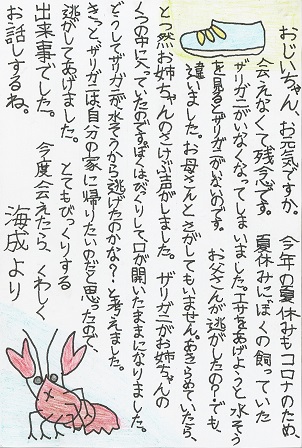 おじいちゃん、お元気ですか。今年の夏休みもコロナのため、
会えなくて残念です。夏休みにぼくの飼っていた
ザリガニがいなくなってしまいました。エサをあげようと水そう
を見るとザリガニがいないのです。お父さんが逃がしたの？でも
違いました。お母さんとさがしてもいません。あきらめていたら、
とつ然お姉ちゃんのさけぶ声がしました。ザリガニがお姉ちゃんの
くつの中に入っていたのです。ぼくはびっくりして口が開いたままになりました。
どうしてザリガニが水そうから逃げたのかな？と考えました。
きっとザリガニは自分の家に帰りたいのだと思ったので、
逃がしてあげました。とてもびっくりする
出来事でした。今度会えたら、くわしく
お話しするね。
海成より